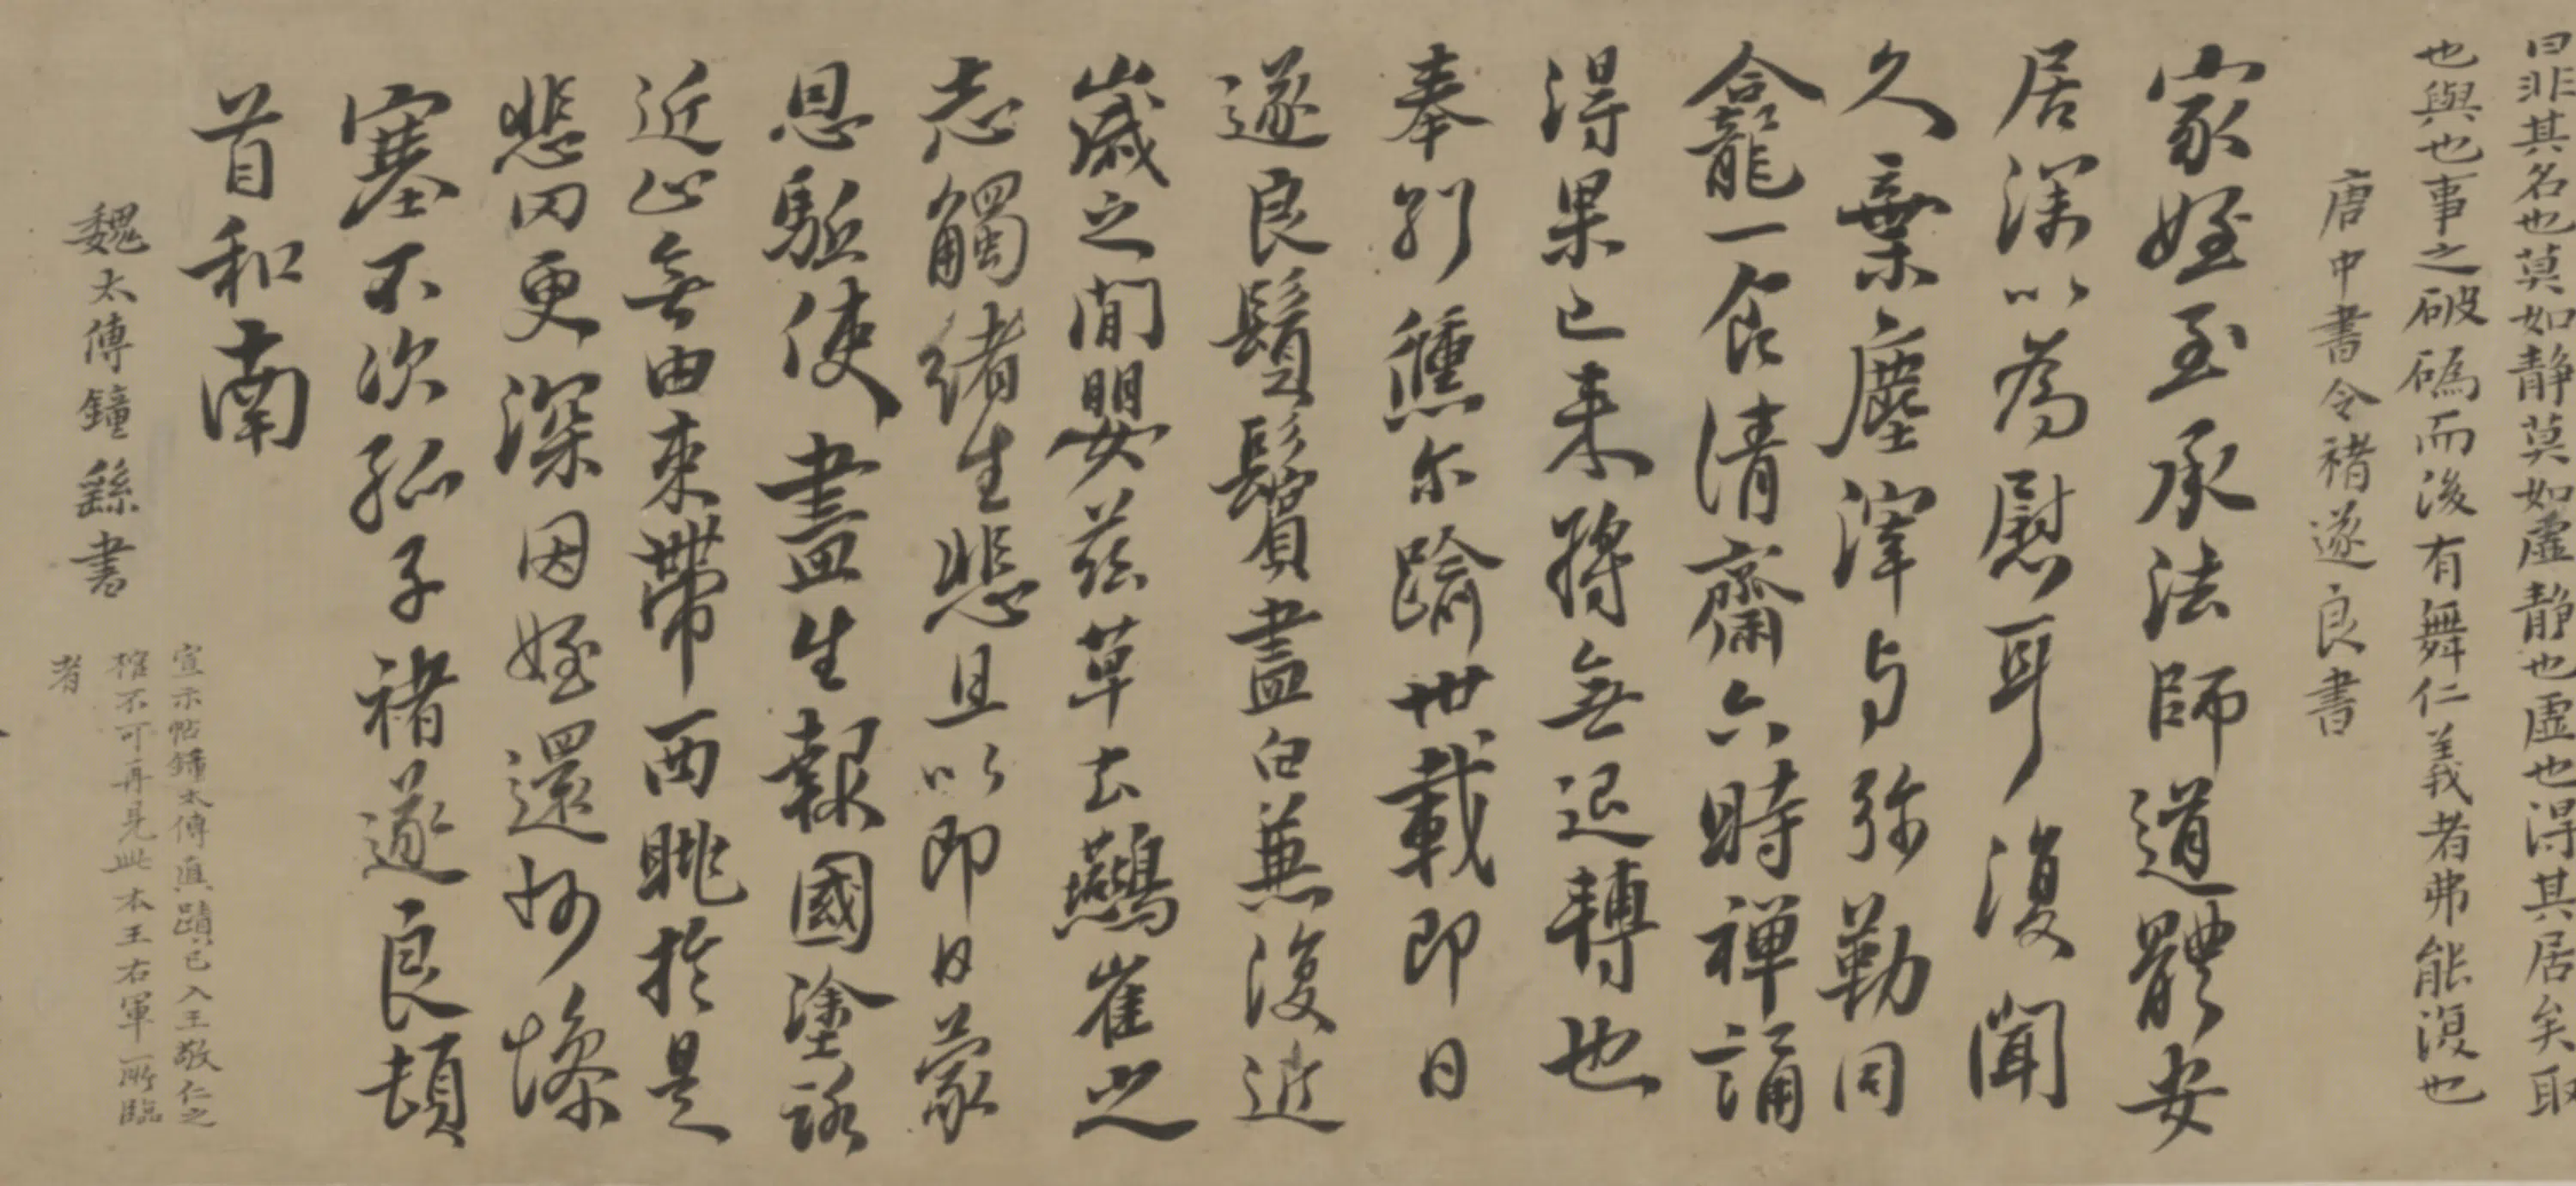 曰非其名也莫如静莫如虚静也虚也得其居矣取
也與也事之破䃣而後有舞仁義者弗能復也
唐中書令褚遂良書
家姪至承法師道體安
居深以為慰耳復聞
久棄塵滓与弥勒同
龕一食清齋六時禅誦
得果已来將無退轉也
奉別倐尔踰卅載即日
遂良鬢鬢盡白兼復近
歲之間嬰茲草土鷰雀之
志觸緒生悲且以即日蒙
恩駈使盡生報國塗路
近止無由來帶西眺於是
悲罔更深因姪還州慘
塞不次孤子褚遂良頓
首和南
魏太傅鐘繇書
宣示帖鍾太傅真蹟已入王敬仁之
棺不可再見此本王右軍所臨
者